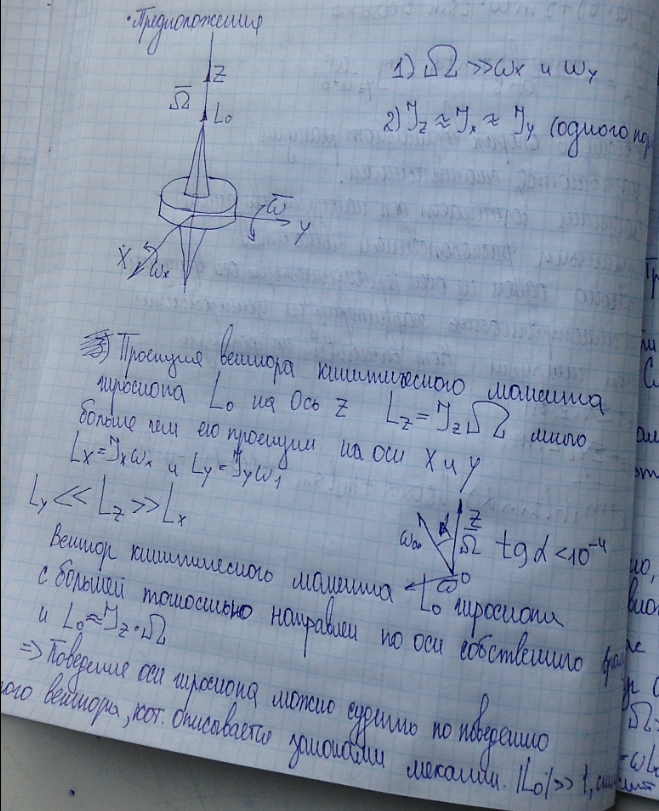 • Предположения
1) Ω >> ωx и ωy
2) Jz ≈ Jx ≈ Jy (одного пор
Z
Ω̄
L₀
ω̄
Y
X
ωx
Проекция вектора кинетического момента
гироскопа L₀ на ось Z Lz = JzΩ много
больше чем его проекции на оси X и Y
Lx = Jxωx и Ly = Jyω1
Ly << Lz >> Lx
Z
α
Ω̄
0
ω̄
tgα < 10⁻⁴
Вектор кинетического момента L₀ гироскопа
с большей точностью направлен по оси собственного
и L₀ ≈ Jz·Ω
=> Поведение оси гироскопа можно судить по поведению
ого вектора, кот. описывается законами механики. |L₀| >> 1,